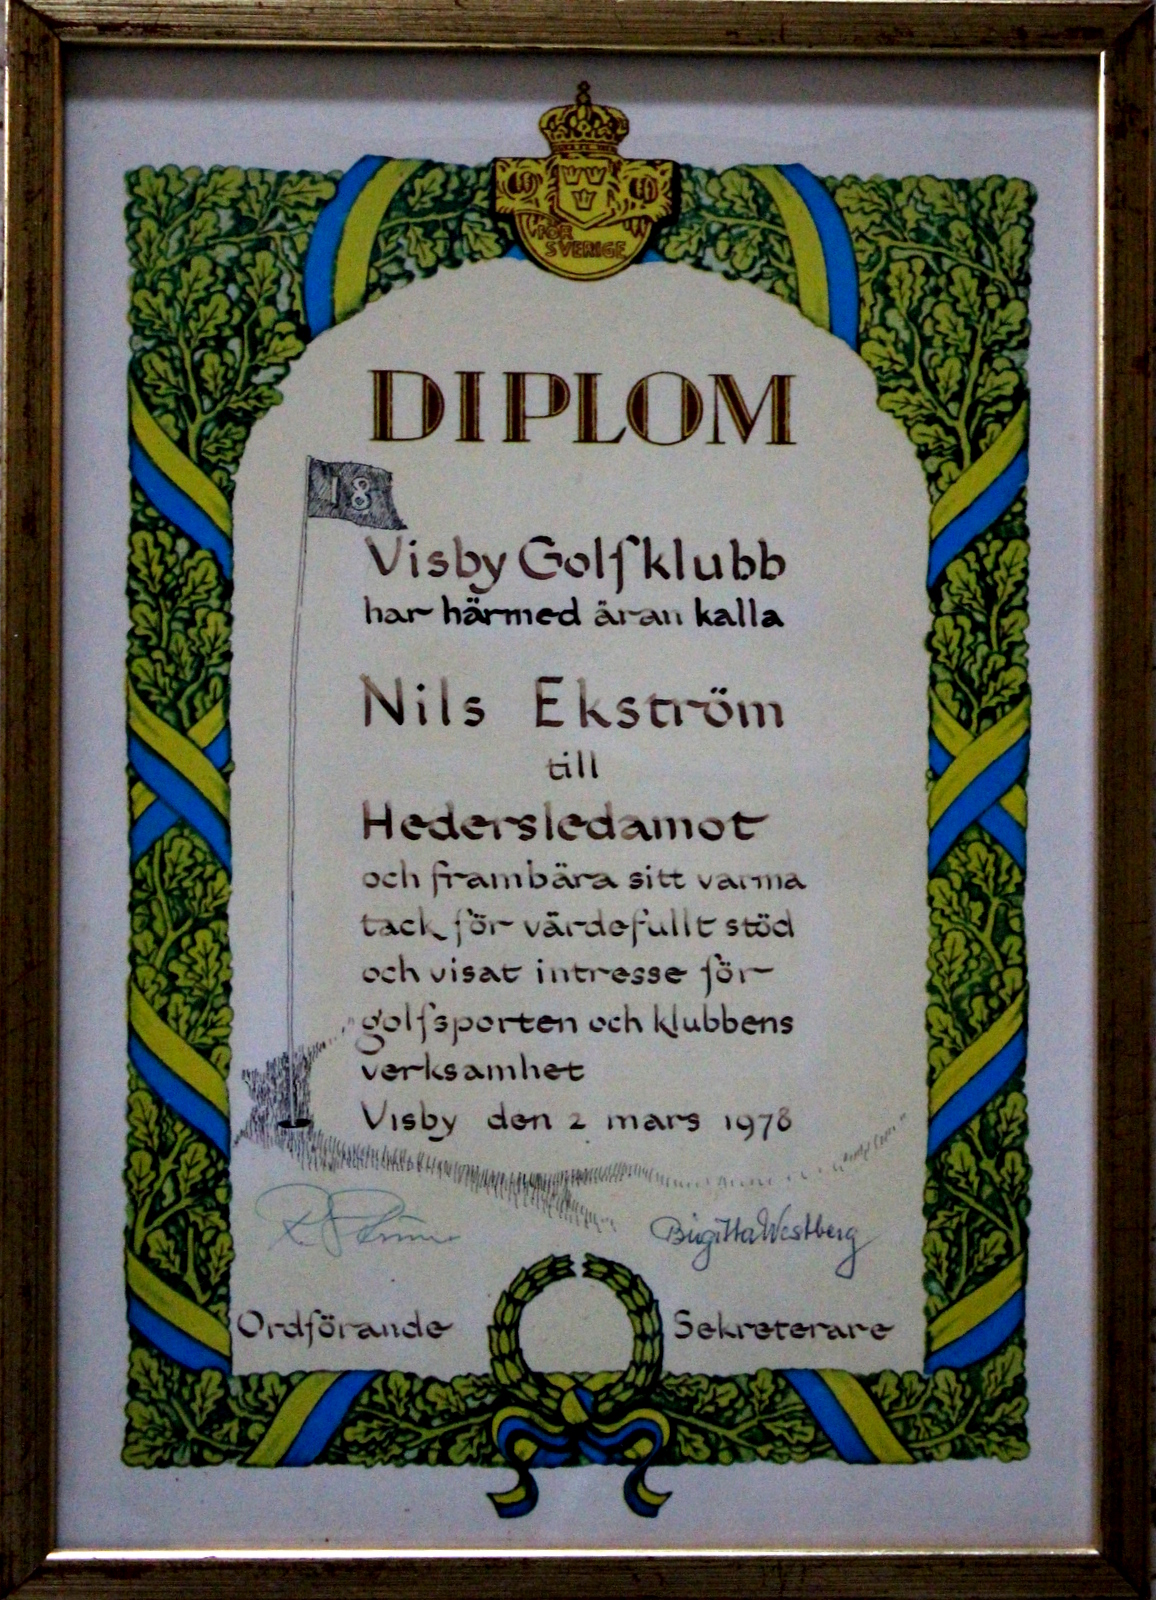 FÖR
SVERIGE
DIPLOM
18
Visby Golfklubb
har härmed äran kalla
Nils Ekström
till
Hedersledamot
och frambära sitt varma
tack för värdefullt stöd
och visat intresse för
golfsporten och klubbens
verksamhet
Visby den 2 mars 1978
Birgitta Westberg
Ordförande
Sekreterare